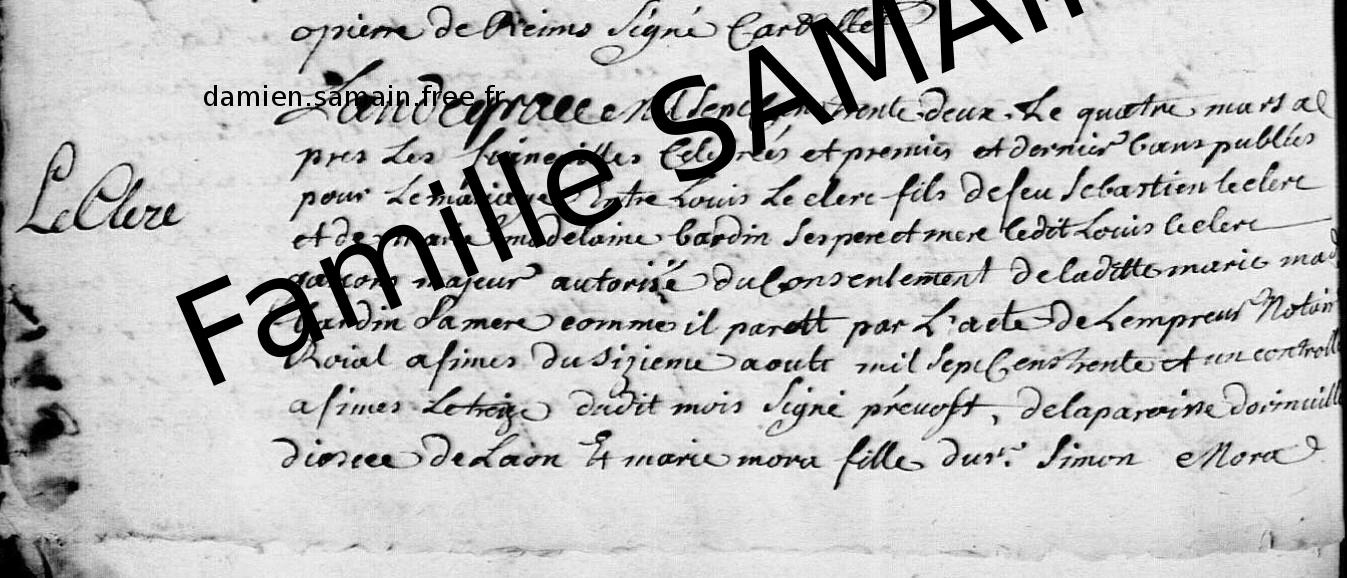 opierre de Reims Signé
damien.samain.free.fr
Famille SAMAIN
Landegrace mil Sept Cens trente deux. Le quatre mars a
pres Les fiancailles Celebrés et premier et dernier bans publiés
LeClerc
pour Le mariage Entre Louis Leclerc fils de feu Sebastien leclerc
et de marie madelaine bardin Ses pere et mere ledit Louis leclerc
garcons majeur autorisé du Consentement de laditte marie mad
bardin Sa mere comme il paroitt par L'acte de Lempreur Notair
Roial a fimes du Sizieme aoust mil Sept Cens trente et un controllé
a fimes Le treize dudit mois Signé prévost, de la paroisse
diocese de Laon Et marie mora fille du r. Simon Mora